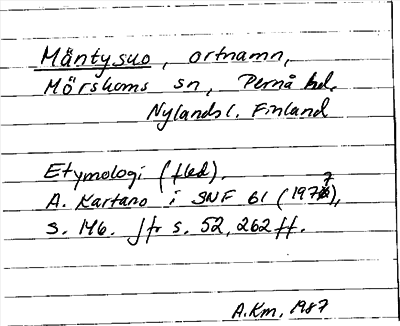 Mäntysuo, ortnamn,
Mörskoms sn, Pernå hd.
Nylands l. Finland
Etymologi (fled).
A. Kartano i SNF 61 (1977),
s. 146. Jfr s. 52, 262 ff.
A.Km, 1987